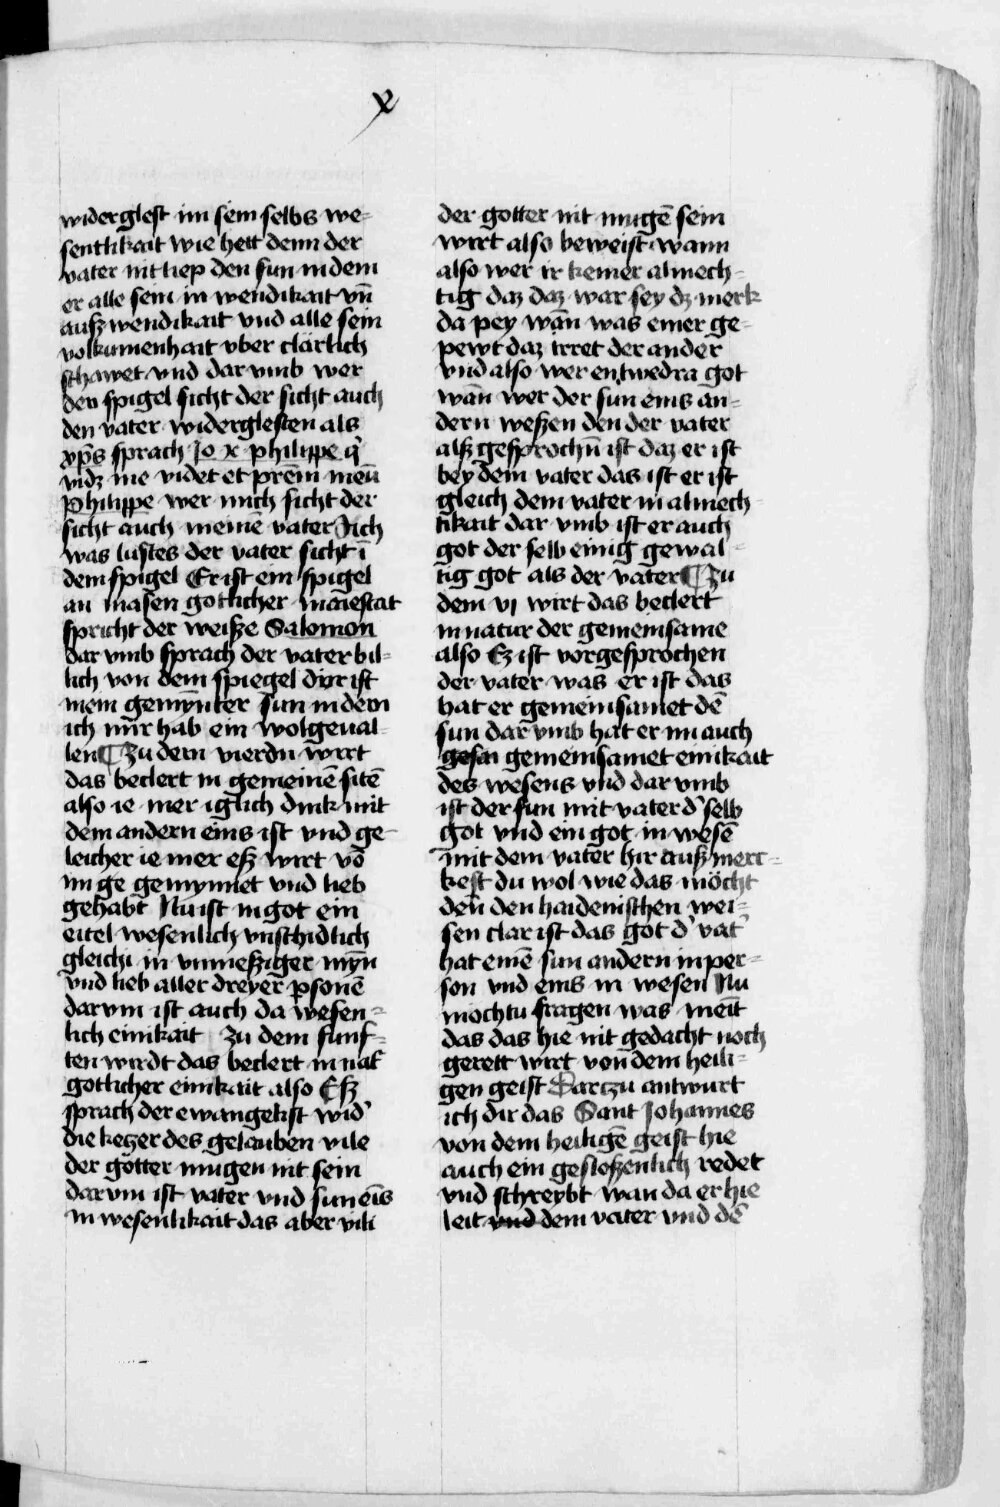 x
widerglest im sein selbs we-
sentlikait wie hett denn der
vater nit liep den sun in dem
er alle sein in wendikait vn̄
ausz wendikait vnd alle sein
volkumenhait vber clärlich
schawet vnd dar vmb wer
den spigel sicht der sicht auch
den vater widerglesten als
xp̄s sprach Jo x philippe q̇
videt me videt et pr̄em meū
Philippe wer mich sicht der
sicht auch meinē vater Jich
was lustes der vater sicht ī
dem spigel Er ist ein spigel
an masen gotlicher maiestat
spricht der weisze Salomon
dar vmb sprach der vater bil-
lich von dem spiegel dirr ist
mein gemynter sun in dem
ich mir hab ein wolgeual-
len ¶ Zu dem vierdn wirt
das beclert in gemeinē sitē
also ie mer iglich dink mit
dem andern eins ist vnd ge-
leicher ie mer esz wirt vō
im ge gemynnet vnd lieb
gehabt Nu ist in got ein
eitel wesenlich vnschidlich
gleichi in vnmesziger myn
vnd lieb aller dreyer psonē
darvm ist auch da wesen-
lich einikait Zu dem funf-
ten wirdt das beclert in nat̄
gotlicher einikait also Esz
sprach der ewangelist wid'
die keczer des gelauben vile
der götter mugen nit sein
darvm ist vater vnd sun eīs
in wesenlikait das aber vili
der gotter nit mugē sein
wirt also beweist wann
also wer ir keiner almech-
tig daz daz war sey dz merk
da pey wān was einer ge-
pewt daz irret der ander
vnd also wer entwedra got
wān wer der sun eins an-
dern weszen den der vater
alsz gesprochn̄ ist daz er ist
bey dem vater das ist er ist
gleich dem vater in almech-
tikait dar vmb ist er auch
got der selb einig gewal-
tig got als der vater ¶ Zu
dem vj wirt das beclert
in natur der gemeinsame
also Ez ist vorgesprochen
der vater was er ist das
hat er gemeinsamet dē
sun dar vmb hat er im auch
gesai gemeinsamet einikait
des wesens vnd dar vmb
ist der sun mit vater d' selb
got vnd ein got in wesē
mit dem vater hir ausz merc-
kest du wol wie das möcht
den den haidenischen wei-
sen clar ist das got d' vat'
hat einē sun andern in per-
son vnd eins in wesen Nu
mochtu fragen was meīt
das das hie nit gedacht noch
gerett wirt von dem heili-
gen geist Darczu antwurt
ich dir das Sant Johannes
von dem heiligē geist hie
auch ein gesloszenlich redet
vnd schreybt wan da er hie
leit vnd dem vater vnd dē